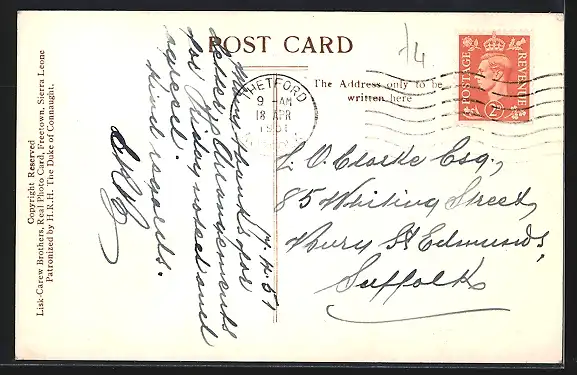 POST CARD
The Address only to be
written here
THETFORD
9 - AM
18 APR
1951
POSTAGE
REVENUE
2D
14
17.4.51
Many thanks for
letter & Arrangements
for Friday noted and
agreed.
Kind regards.
L. O. Clarke Esq,
85 Whiting Street,
Bury St Edmunds,
Suffolk
Copyright Reserved
Lisk-Carew Brothers, Real Photo Card, Freetown, Sierra Leone
Patronized by H.R.H. The Duke of Connaught.